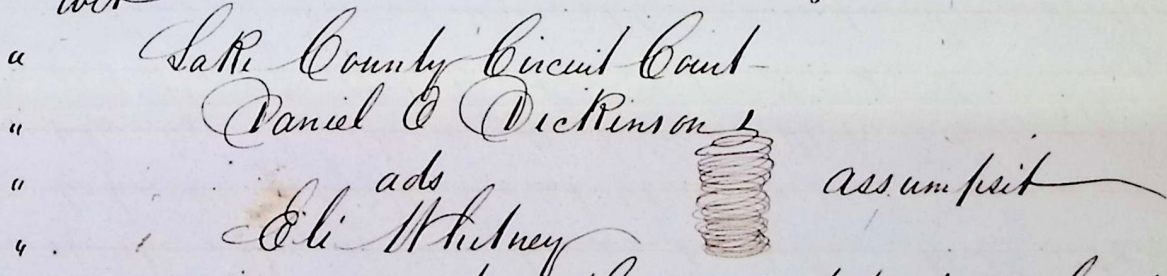 " Lake County Circuit Court
" Daniel O Dickinson
" ads assumpsit
" Eli Whitney